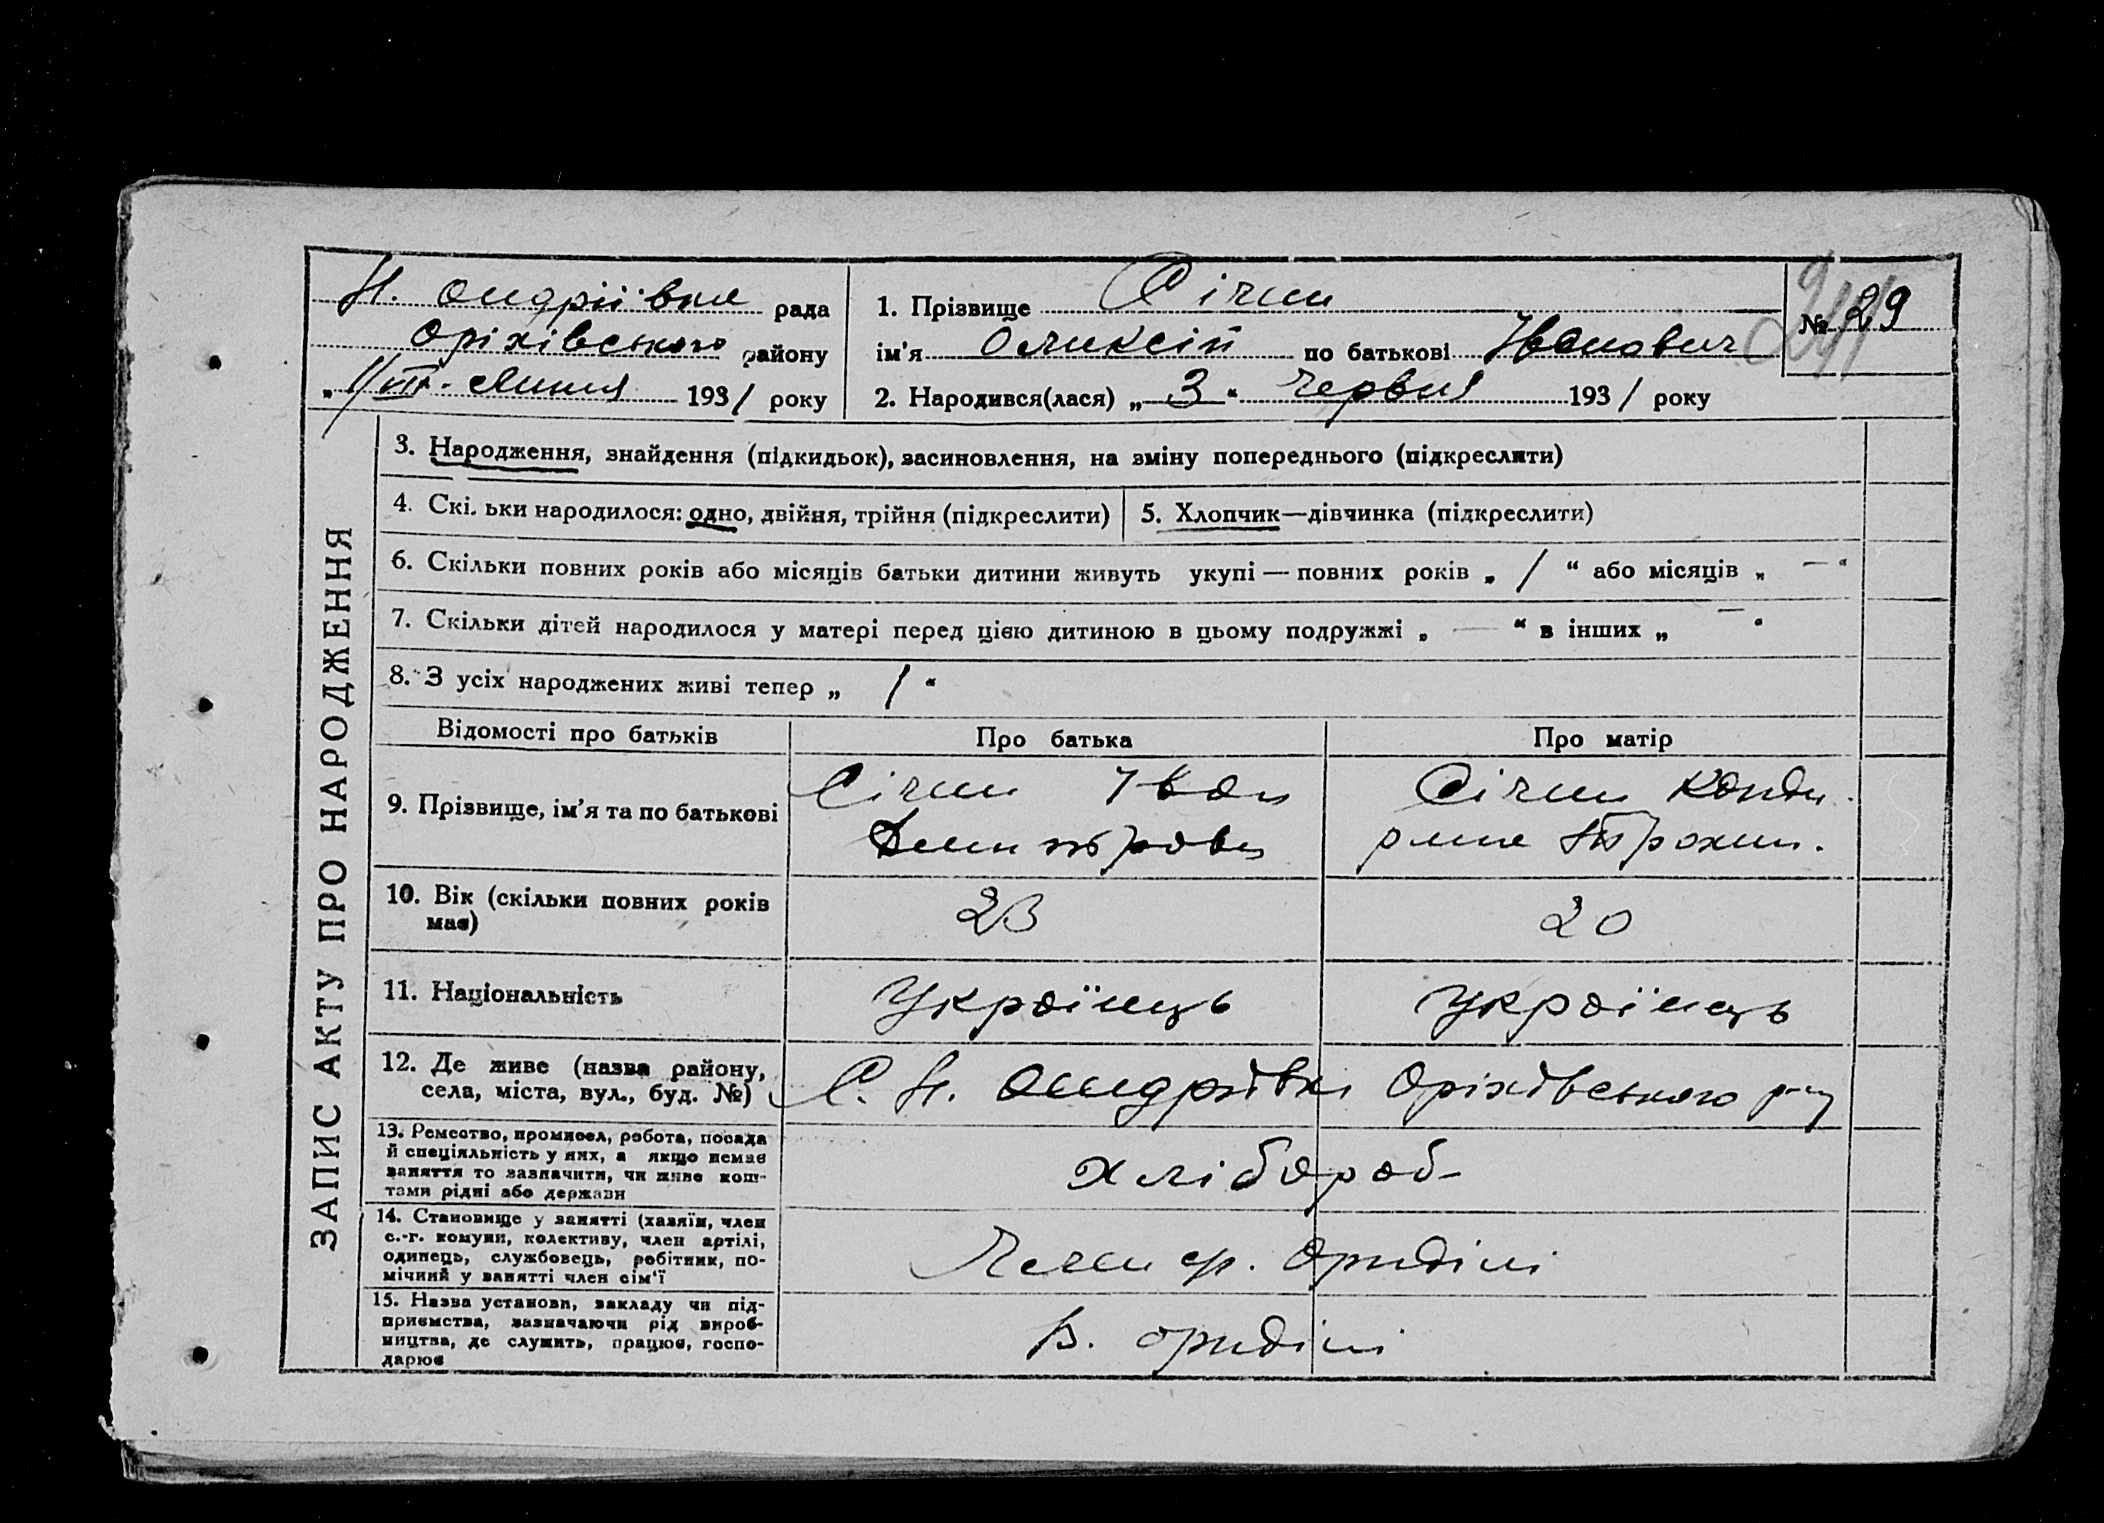 Н. Андріївка рада
Оріхівського району
„ 1/VII. Липня 1931 року
1. Прізвище Січин
ім'я Оликсій по батькові Іванович
2. Народився(лася) „ 3 “ Червня 1931 року
№ 29
ЗАПИС АКТУ ПРО НАРОДЖЕННЯ
3. Народження, знайдення (підкидьок), засиновлення, на зміну попереднього (підкреслити)
4. Скільки народилося: одно, двійня, трійня (підкреслити)
5. Хлопчик—дівчинка (підкреслити)
6. Скільки повних років або місяців батьки дитини живуть укупі — повних років „ 1 “ або місяців „ — “
7. Скільки дітей народилося у матері перед цією дитиною в цьому подружжі „ — “ в інших „ — “
8. З усіх народжених живі тепер „ 1 “
Відомості про батьків Про батька Про матір
9. Прізвище, ім'я та по батькові
Січин Іван
Дмитрови
Січин
Трохим.
10. Вік (скільки повних років має) 23 20
11. Національність Українець Українець
12. Де живе (назва району, села, міста, вул., буд. №)
С. Н. Андріївка Оріхівського р-ну
13. Ремество, промисел, робота, посада
й спеціяльність у них, а якщо немає
заняття то зазначити, чи живе кош-
тами рідні або держави
хлібороб
14. Становище у занятті (хазяїн, член
с.-г. комуни, колективу, член артілі,
одинець, службовець, робітник, по-
мічний у занятті член сім'ї
Член ср. Артілі
15. Назва установи, закладу чи під-
приємства, зазначаючи рід вироб-
ництва, де служить, працює, госпо-
дарює
В. артілі